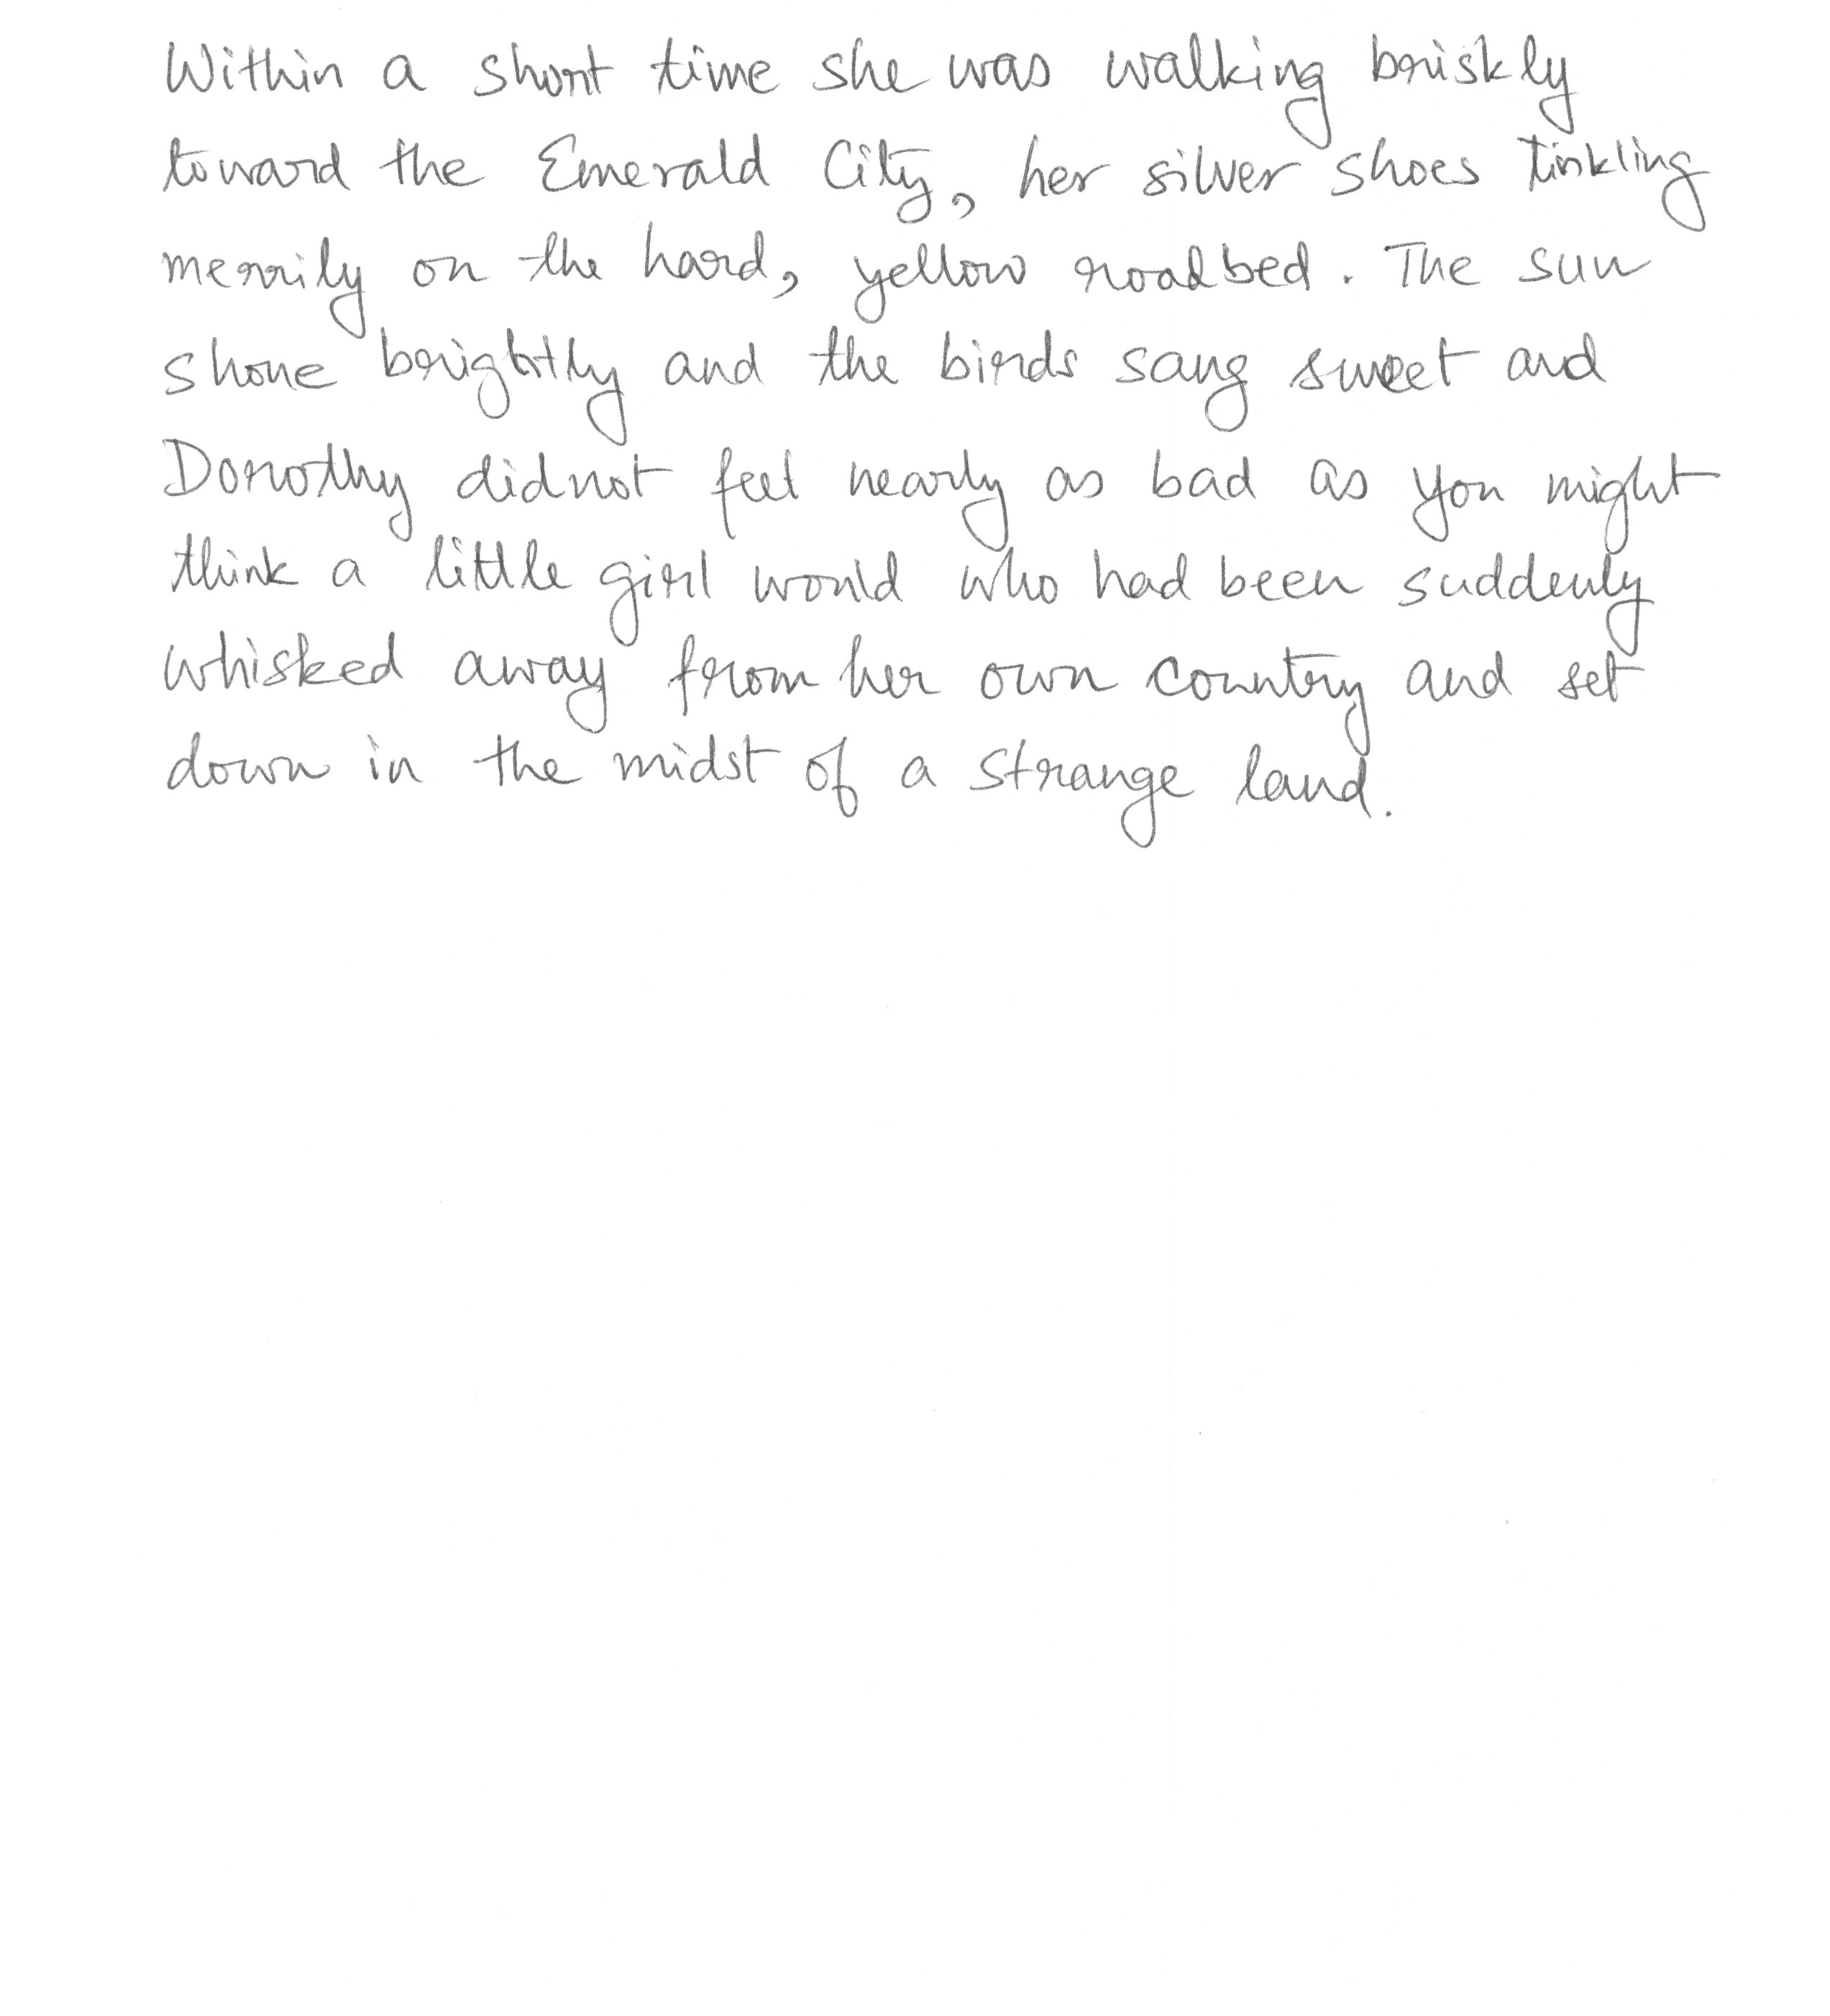 Within a short time she was walking briskly
toward the Emerald City, her silver shoes tinkling
merrily on the hard, yellow roadbed. The sun
shone brightly and the birds sang sweet and
Dorothy didnot feel nearly as bad as you might
think a little girl would who had been suddenly
whisked away from her own country and set
down in the midst of a strange land.